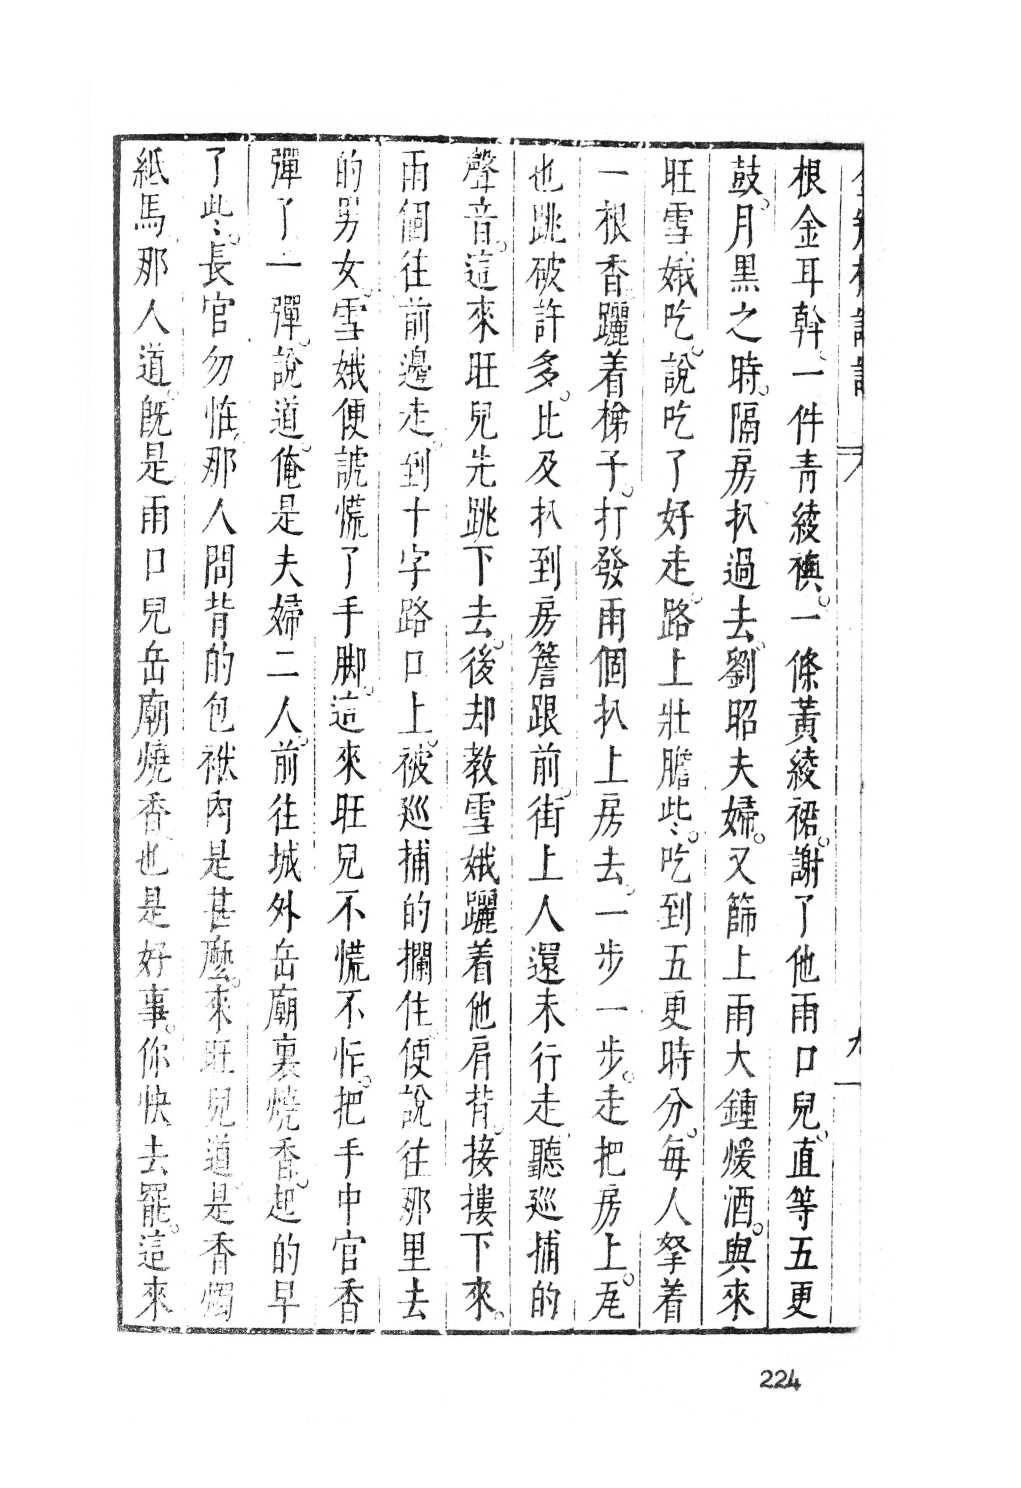 根金耳斡一件青綾襖。一條黃綾裙。謝了他兩口兒。直等五更
鼓。月黑之時。隔房扒過去。劉昭夫婦。又篩上兩大鍾煖酒。與來
旺雪娥吃。說吃了好走。路上壯膽些。吃到五更時分。每人拏着
一根香。躧着梯子。打發兩個扒上房去。一步一步。走把房上。瓦
也跳破許多。比及扒到房簷跟前。街上人還未行走。聽巡捕的
聲音。這來旺兒先跳下去。後却教雪娥躧着他肩背。接摟下來。
兩個往前邊走。到十字路口上。被巡捕的攔住。便說往那里去
的男女。雪娥便諕慌了手脚。這來旺兒不慌不怍。把手中官香
彈了一彈。說道。俺是夫婦二人。前往城外岳廟裏燒香。起的早
了些。長官勿恠。那人問背的包袱內是甚麼。來旺兒道。是香燭
紙馬。那人道。旣是兩口兒岳廟燒香。也是好事。你快去罷。這來
九
224